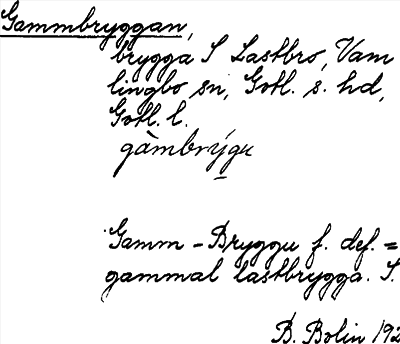 Gammbryggan,
brygga S Lastbro, Vam
lingbo sn, Gotl. s. hd,
Gotl. l.
gàmbrýgu
Gamm - Bryggu f. def. =
gammal lastbrygga. S.
B. Bolin 192